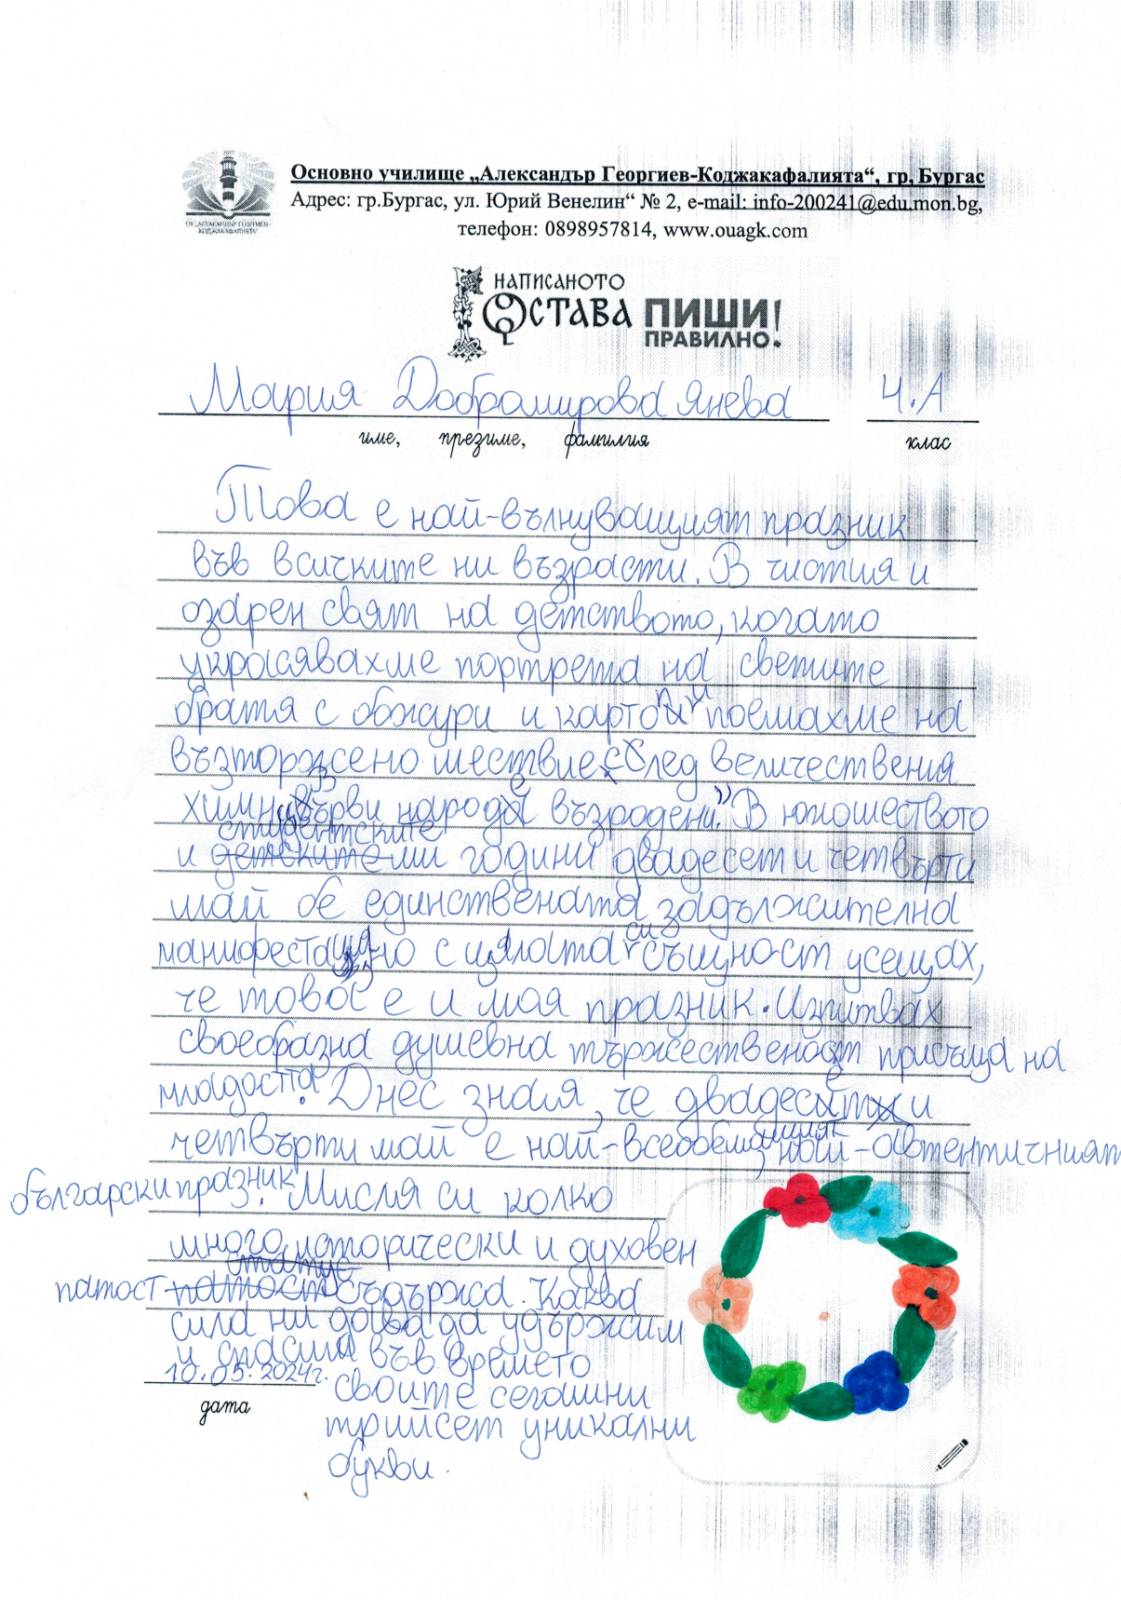 Основно училище „Александър Георгиев-Коджакафалията“, гр. Бургас
Адрес: гр.Бургас, ул. Юрий Венелин“ № 2, e-mail: info-200241@edu.mon.bg,
телефон: 0898957814, www.ouagk.com
ОУ „АЛЕКСАНДЪР ГЕОРГИЕВ-
КОДЖАКАФАЛИЯТА“
НАПИСАНОТО
ОСТАВА ПИШИ
ПРАВИЛНО!
Мария Добрамирова Янева 4.А
име, презиме, фамилия клас
Това е най-вълнуващият празник
във всичките ни възрасти. В чистия и
озарен свят на детството, когато
украсявахме портрета на светите
братя с божури и картопии поемахме на
възторжено шествие след величествения
химн „Върви народе възродени.“ В юношеството
и студентските ми години двадесет и четвърти
май бе единствената задължителна
манифестация, но с цялата си същност усещах,
че това е и моя празник. Изпитвах
своеобразна душевна тържественост присъща на
младостта. Днес зная, че двадесет и
четвърти май е най-всеобемащият, най-автентичният
български празник. Мисля си колко
много исторически и духовен
патост съдържа. Каква
сила ни дава да удържим
и спасим във времето
10.05.2024г. своите сегашни
дата
трийсет уникални
букви.